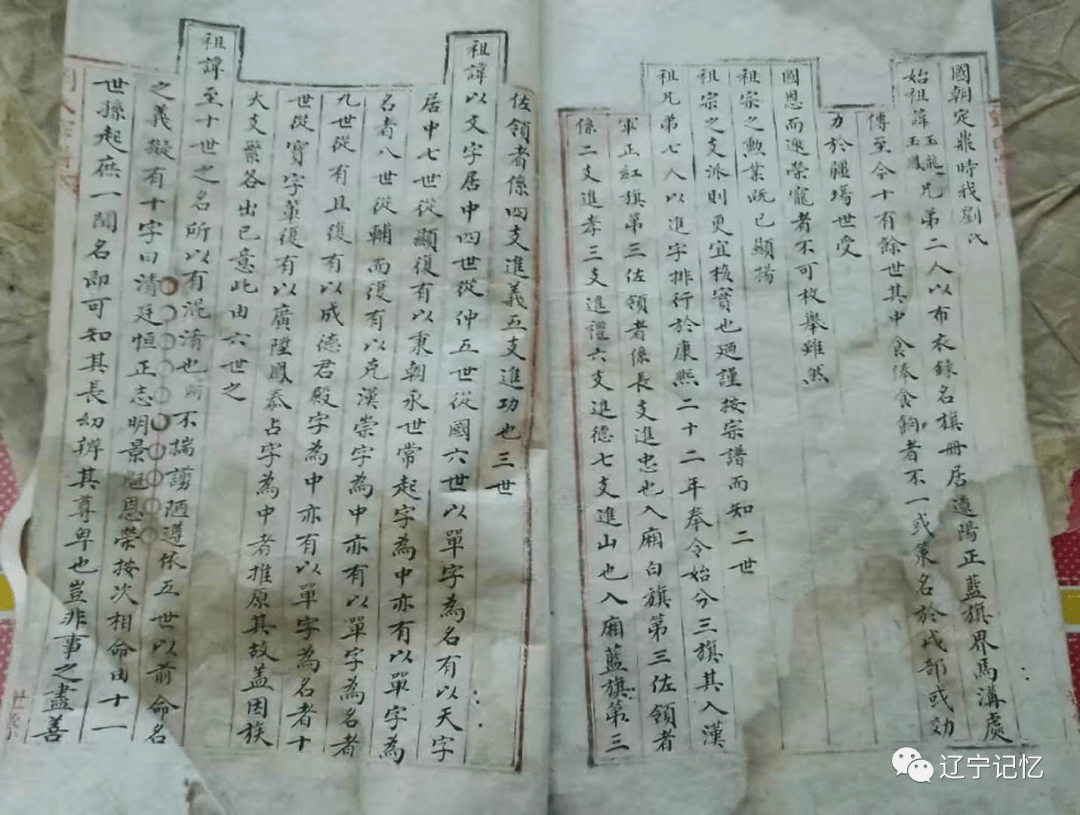 國朝定鼎時我劉氏
始祖諱玉龍玉鳳兄弟二人以布衣錄名旗冊居遼陽正藍旗界馬溝處
傳至今十有餘世其中食俸食餉者不一或策名於戎部或効
力於疆場世受
國恩而遞榮寵者不可枚舉雖然
祖宗之勳業既已顯揚
祖宗之支派則更宜核實也廼謹按宗譜而知二世
祖兄弟七人以進字排行於康熙二十二年奉令始分三旗其入漢
軍正紅旗第三佐領者係長支進忠也入廂白旗第三佐領者
係二支進孝三支進禮六支進德七支進山也入廂藍旗第三
佐領者係四支進義五支進功也三世
祖諱以文字居中四世從仲五世從國六世以單字為名有以天字
居中七世從顯復有以秉朝永世常起字為中亦有以單字為
名者八世從輔而復有以克漢崇字為中亦有以單字為名者
九世從有且復有以成德君殿字為中亦有以單字為名者十
世從寶字輩復有以廣陞鳳泰占字為中者推原其故蓋因族
大支繁各出己意此由六世之
祖諱至十世之名所以有混淆也 不揣謭陋遵依五世以前命名
之義擬有十字曰清廷恒正志明景 恩榮按次相命由十一
世孫起庶一聞名即可知其長幼辨其尊卑也豈非事之盡善
辽宁记忆